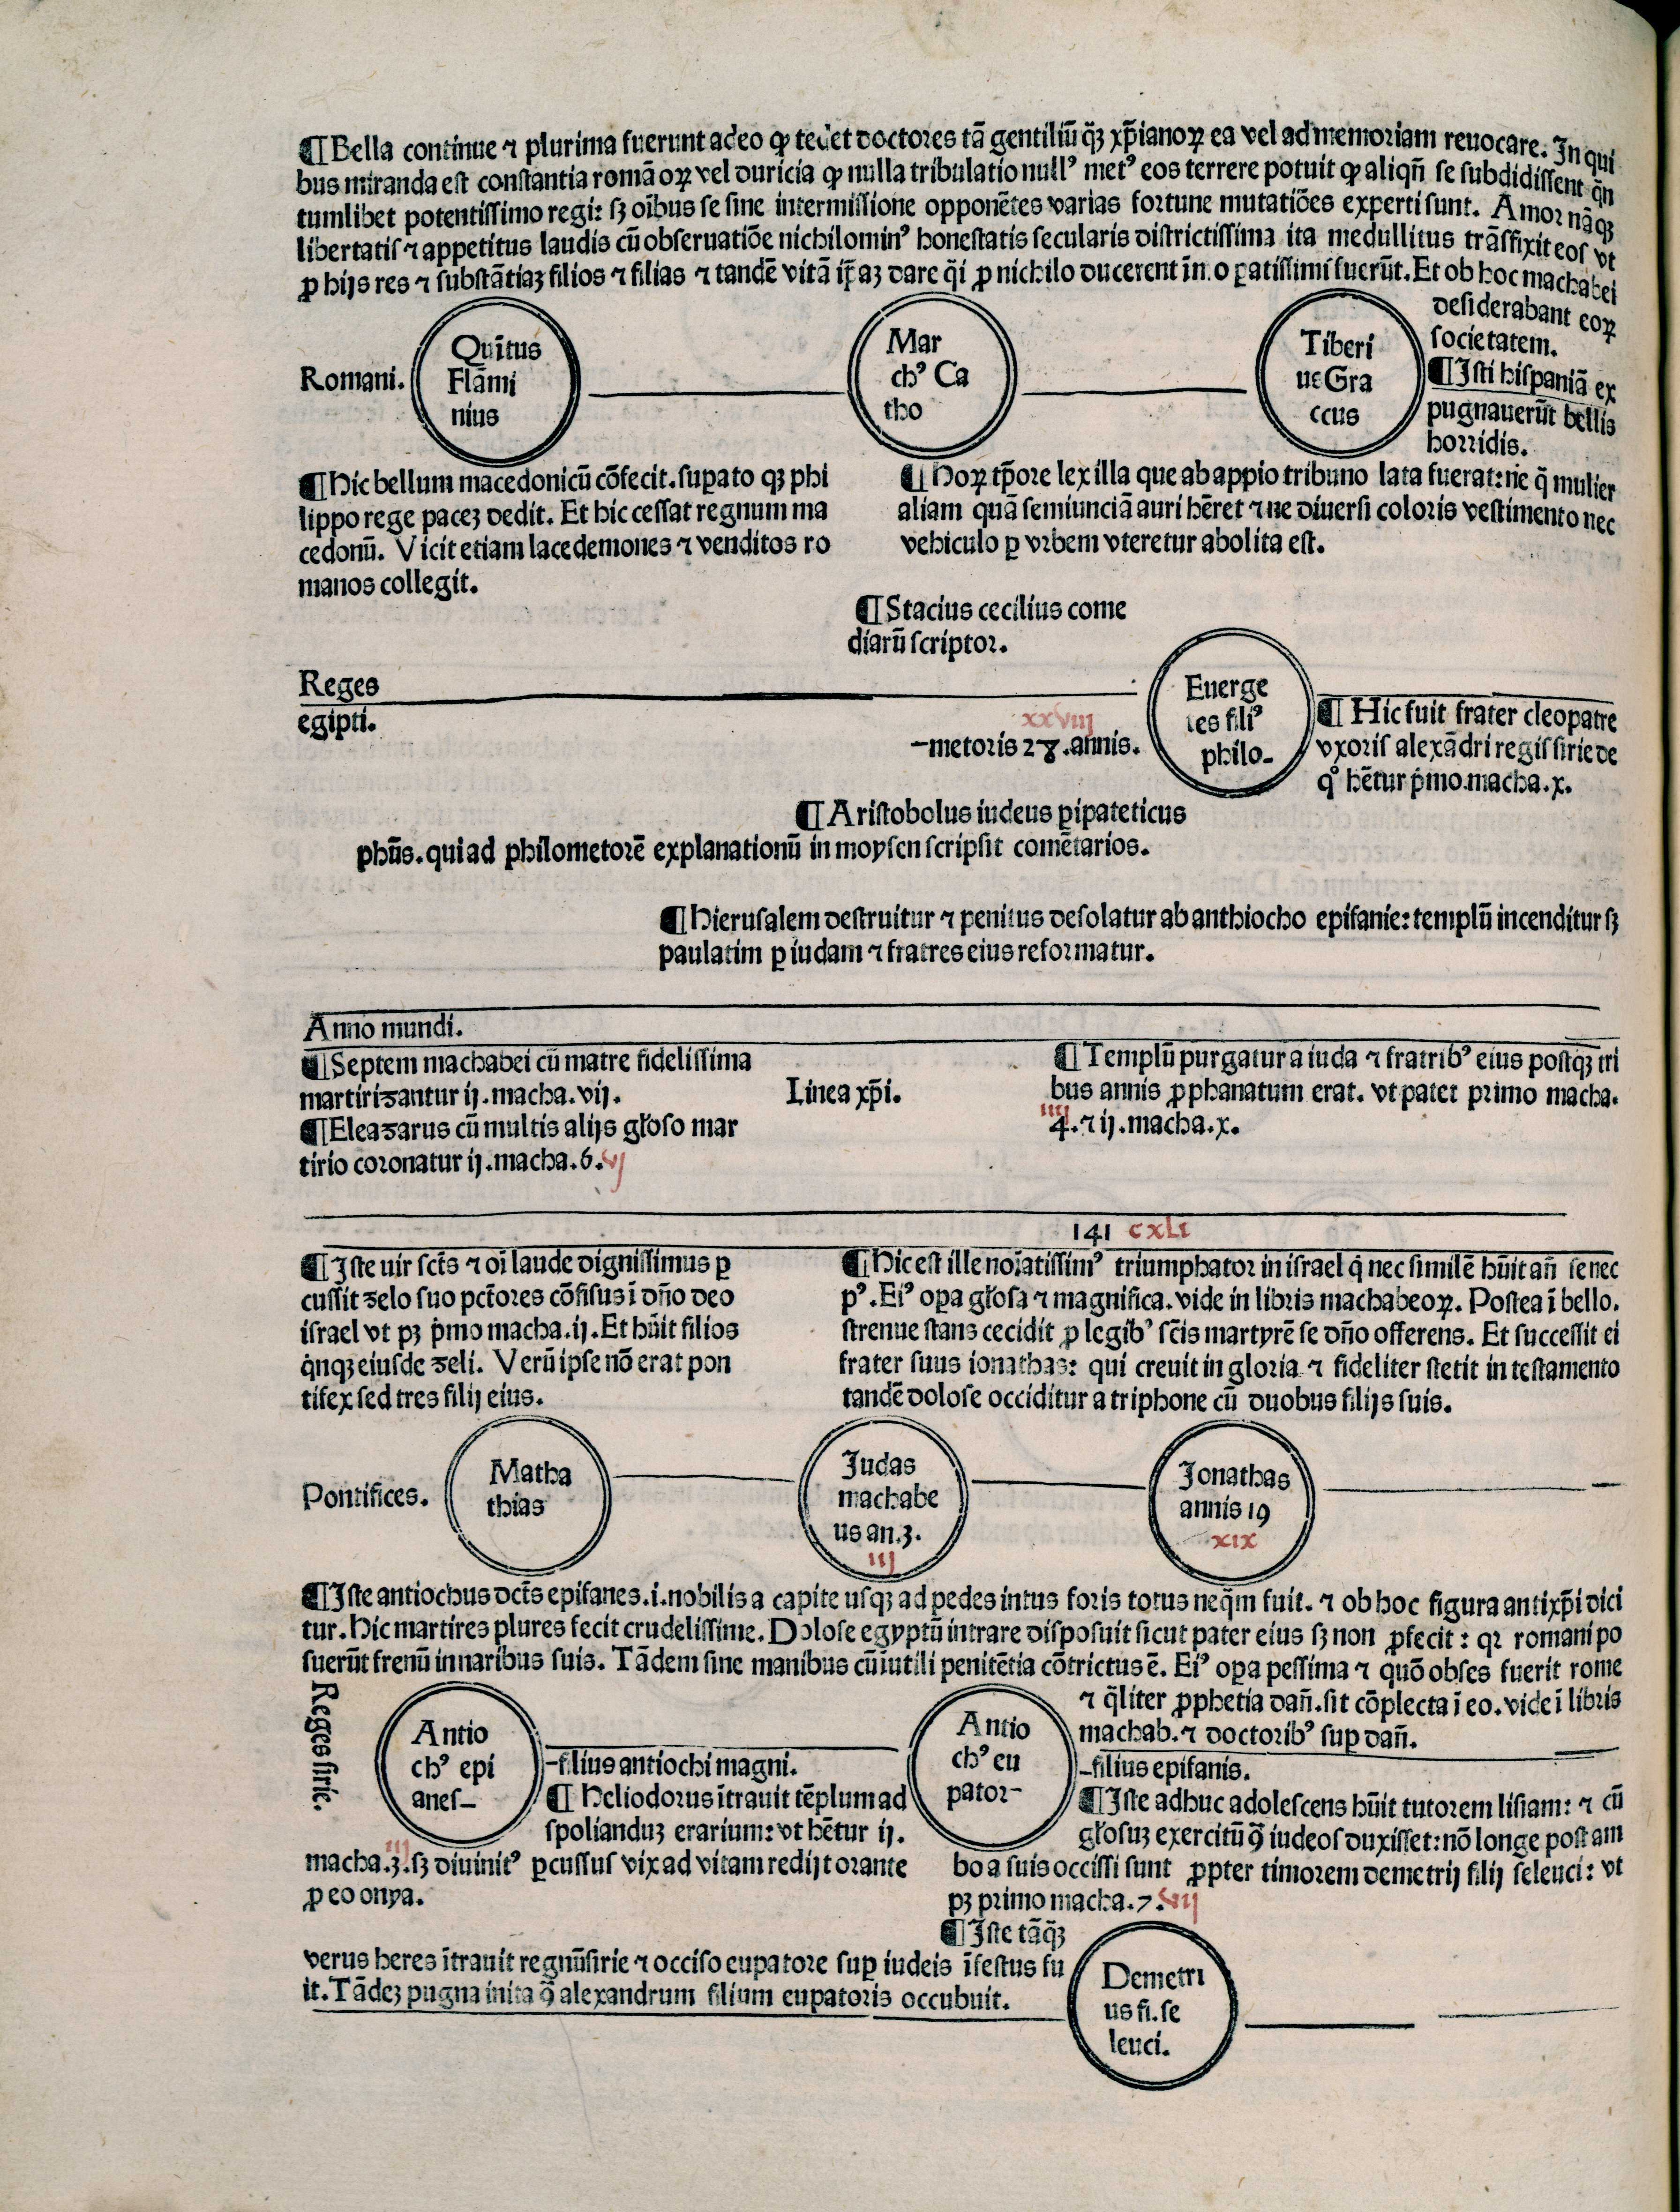 ¶Bella continue ⁊ plurima fuerunt adeo ꝙ tedet doctores tā gentiliū q̄ꝫ xp̄ianoꝝ ea vel ad memoriam reuocare. In qui
bus miranda est constantia romāoꝝ vel duricia ꝙ nulla tribulatio nullꝰ metꝰ eos terrere potuit ꝙ aliqn̄ se subdidissent qn̄
tumlibet potentissimo regi: sꝫ oībus se sine intermissione opponētes varias fortune mutatiōes experti sunt. Amor nāqꝫ
libertatis ⁊ appetitus laudis cū obseruatiōe nichilominꝰ honestatis secularis districtissima ita medullitus trāsfixit eos vt
ꝓ hijs res ⁊ substātiaꝫ filios ⁊ filias ⁊ tandē vitā ip̄aꝫ dare q̄i ꝓ nichilo ducerent īmo ꝑatissimi fuerūt. Et ob hoc machabei
desiderabant eoꝝ
societatem.
Romani.
Quītus
Flāmi
nius
Mar
chꝰ Ca
tho
Tiberi
us Gra
ccus
¶Isti hispaniā ex
pugnauerūt bellis
horridis.
¶Hic bellum macedonicū cōfecit. suꝑato qꝫ phi
lippo rege paceꝫ dedit. Et hic cessat regnum ma
cedonū. Vicit etiam lacedemones ⁊ venditos ro
manos collegit.
¶Hoꝝ tp̄ore lex illa que ab appio tribuno lata fuerat: ne q̄ mulier
aliam quā semiunciā auri hēret ⁊ ne diuersi coloris vestimento nec
vehiculo ꝑ vrbem vteretur abolita est.
¶Stacius cecilius come
diarū scriptor.
Reges
egipti.
xxviij
-metoris 28.annis.
Euerge
tes filiꝰ
philo-
¶Hic fuit frater cleopatre
vxoris alexādri regis sirie de
qͦ hētur p̄mo.macha.x.
¶Aristobolus iudeus ꝑipateticus
phūs.qui ad philometorē explanationū in moysen scripsit comētarios.
¶Hierusalem destruitur ⁊ penitus desolatur ab anthiocho epifanie: templū incenditur sꝫ
paulatim ꝑ iudam ⁊ fratres eius reformatur.
Anno mundi.
¶Septem machabei cū matre fidelissima
martirizantur ij.macha.vij.
¶Eleazarus cū multis alijs gl̄oso mar
tirio coronatur ij.macha.6.vj
Linea xp̄i.
¶Templū purgatur a iuda ⁊ fratribꝰ eius postq̄ꝫ tri
bus annis ꝓphanatum erat. vt patet primo macha.
iiij
4.⁊ ij.macha.x.
141 cxli
¶Iste uir sct̄s ⁊ oī laude dignissimus ꝑ
cussit zelo suo pct̄ores cōfisus ī dn̄o deo
israel vt pꝫ p̄mo macha.ij. Et hūit filios
qͥnqꝫ eiusde zeli. Verū ipse nō erat pon
tifex sed tres filij eius.
¶Hic est ille noīatissimꝰ triumphator in israel qͥ nec similē hūit an̄ se nec
pꝰ. Eiꝰ oꝑa gl̄osa ⁊ magnifica. vide in libris machabeoꝝ. Postea ī bello.
strenue stans cecidit ꝓ legibꝰ sc̄is martyrē se dn̄o offerens. Et successit ei
frater suus ionathas: qui creuit in gloria ⁊ fideliter stetit in testamento
tandē dolose occiditur a triphone cū duobus filijs suis.
Pontifices.
Matha
thias
Judas
machabe
us an.3.
iij
Jonathas
annis 19
xix
¶Iste antiochus dct̄s epifanes.i.nobilis a capite usqꝫ ad pedes intus foris totus neq̄m fuit. ⁊ ob hoc figura antixp̄i dici
tur. Hic martires plures fecit crudelissime. Dolose egyptū intrare disposuit sicut pater eius sꝫ non ꝓfecit: qꝛ romani po
suerūt frenū in naribus suis. Tādem sine manibus cū iutili penitētia cōtrictus ē. Eiꝰ oꝑa pessima ⁊ quō obses fuerit rome
⁊ q̄liter ꝓphetia dan̄.sit cōplecta ī eo.vide ī libris
machab.⁊ doctoribꝰ suꝑ dan̄.
Reges sirie.
Antio
chꝰ epi
anes-
-filius antiochi magni.
¶Heliodorus ītrauit tēplum ad
spolianduꝫ erarium: vt hētur ij.
iij
macha.3.sꝫ diuinitꝰ ꝑcussus vix ad vitam redijt orante
ꝓ eo onya.
Antio
chꝰ eu
pator-
-filius epifanis.
¶Iste adhuc adolescens hūit tutorem lisiam: ⁊ cū
gl̄osuꝫ exercitū ꝯ iudeos duxisset: nō longe post am
bo a suis occissi sunt ꝓpter timorem demetrij filij seleuci: vt
pꝫ primo macha.7.vij
¶Iste tāq̄ꝫ
verus heres ītrauit regnū sirie ⁊ occiso eupatore suꝑ iudeis īfestus fu
it. Tādeꝫ pugna inita ꝯ alexandrum filium eupatoris occubuit.
Demetri
us fi.se
leuci.